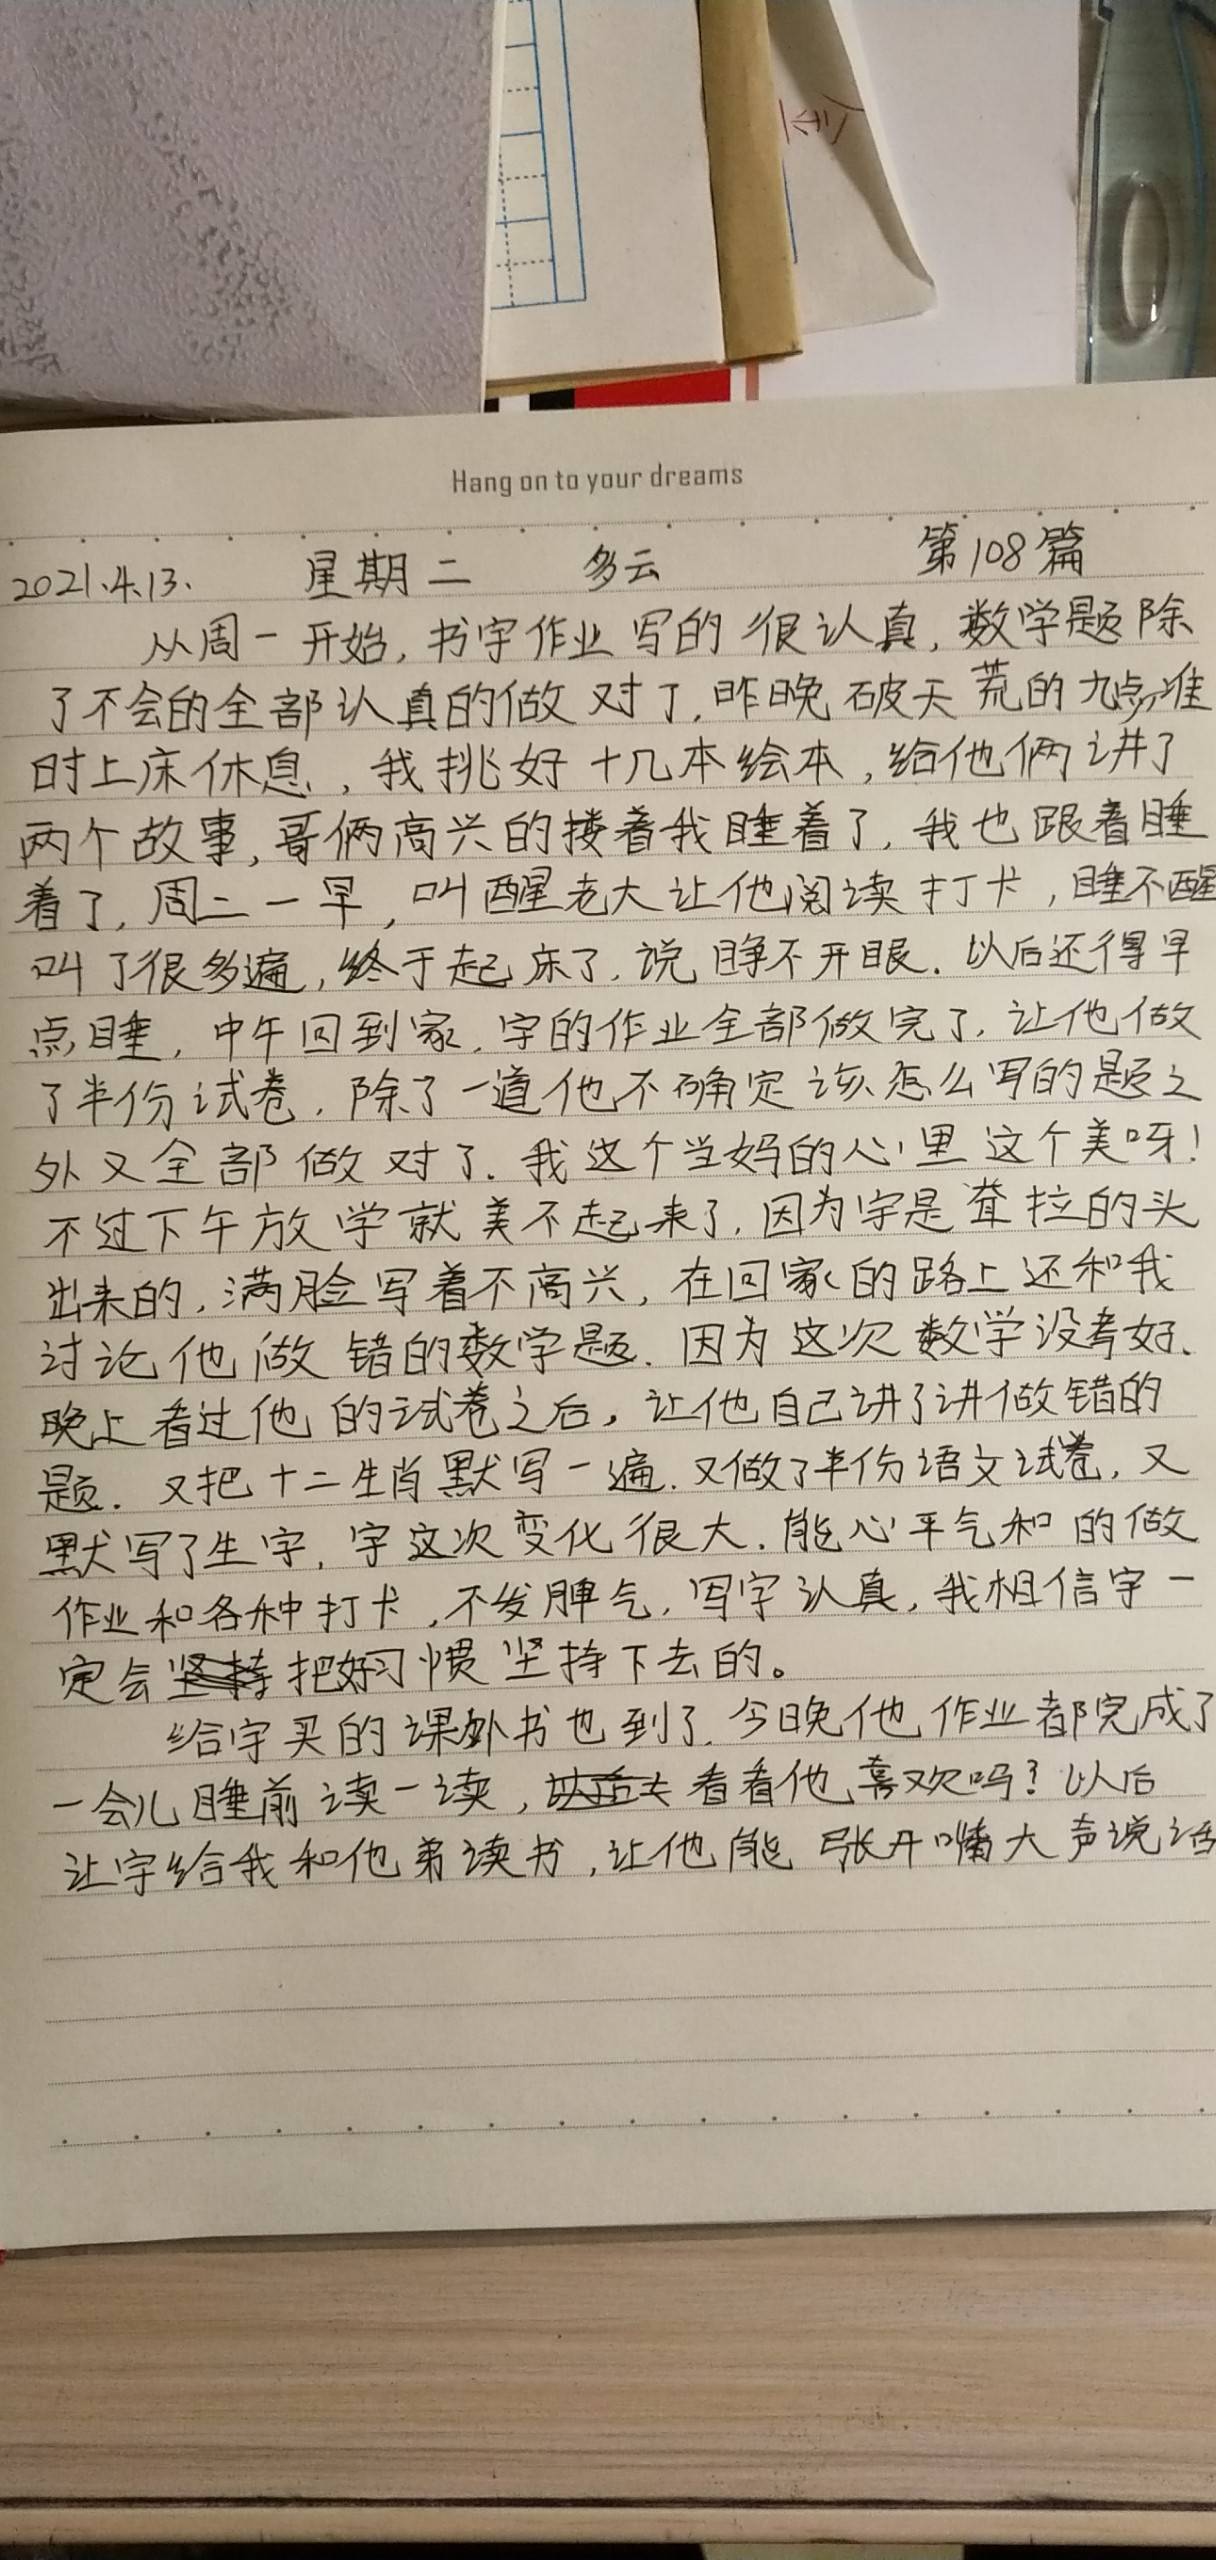 Hang on to your dreams
2021.4.13. 星期二 多云 第108篇
从周一开始,书宇作业写的很认真,数学题除
了不会的全部认真的做对了,昨晚破天荒的九点准
时上床休息,我挑好十几本绘本,给他俩讲了
两个故事,哥俩高兴的搂着我睡着了,我也跟着睡
着了,周二一早,叫醒老大让他阅读打卡,睡不醒
叫了很多遍,终于起床了,说睁不开眼.以后还得早
点睡,中午回到家,宇的作业全部做完了,让他做
了半份试卷,除了一道他不确定该怎么写的题之
外又全部做对了.我这个当妈的心里这个美呀!
不过下午放学就美不起来了,因为宇是耷拉的头
出来的,满脸写着不高兴,在回家的路上还和我
讨论他做错的数学题.因为这次数学没考好.
晚上看过他的试卷之后,让他自己讲了讲做错的
题.又把十二生肖默写一遍.又做了半份语文试卷,又
默写了生字,宇这次变化很大.能心平气和的做
作业和各种打卡,不发脾气,写字认真,我相信宇一
定会把好习惯坚持下去的。
给宇买的课外书也到了.今晚他作业都完成了
一会儿睡前读一读,看看他喜欢吗?以后
让宇给我和他弟读书,让他能张开嘴大声说话